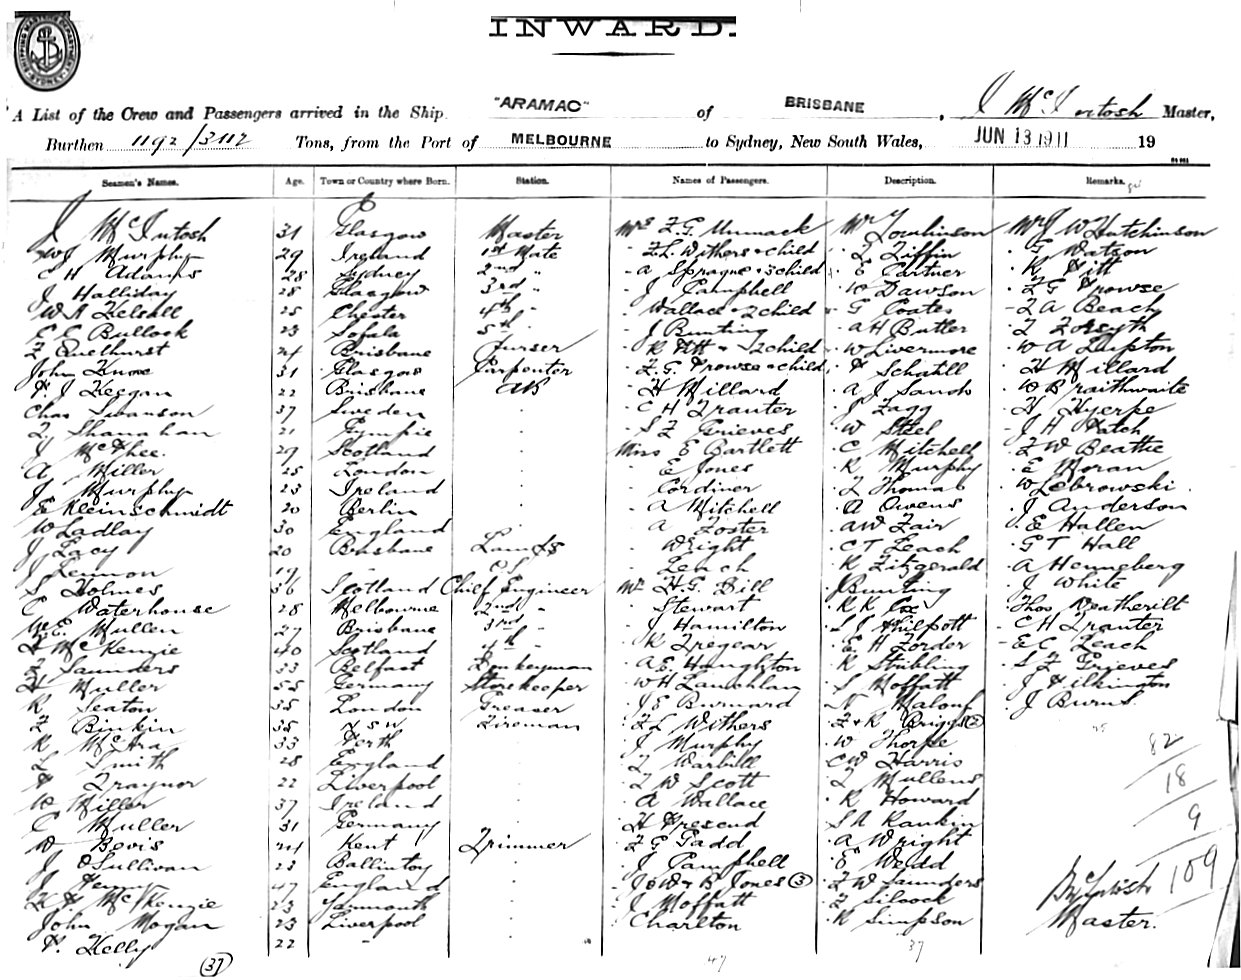 SHIPPING MASTER'S DEPARTMENT SYDNEY
INWARD.
A List of the Crew and Passengers arrived in the Ship "ARAMAC" of BRISBANE, J McIntosh Master,
Burthen 1192/3112 Tons, from the Port of MELBOURNE to Sydney, New South Wales, JUN 13 1911 19
Seamen's Names. Age. Town or Country where Born. Station. Names of Passengers. Description. Remarks.
J McIntosh 31 Glasgow Master Mrs F.G. Unmack Mr Tomlinson Mr J W Hutchinson
W J Murphy 29 Ireland 1st Mate " F.L. Withers & child " L Tiffin " T Watson
C H Adams 28 Sydney 2nd " " A Sprague & 3 child " E Partner " R Pitt
J Halliday 28 Glasgow 3rd " " J Campbell " W Dawson " F G Prowse
W A Kelsall 25 Chester 4th " " Wallace & 2 child " G Coates " F A Beach
E E Bullock 23 Sofala 5th " " J Bunting " A H Butler " T Forsyth
F Quelhurst 24 Brisbane Purser " R Pitt & 2 child " W Livermore " W A Lupton
John Knox 31 Glasgow Carpenter " F.G. Prowse & child " P Schatill " H Millard
P. J Keegan 22 Brisbane AB " H Millard " A J Sands " W Braithwaite
Chas Swanson 37 Sweden " " C H Tranter " J Fagg " H Hyerpe
T Shanahan 21 Gympie " " S F Grieves " W Steel " J H Patch
J McPhee 29 Scotland " Miss E Bartlett " C Mitchell " F W Beattie
A Miller 25 London " " E Jones " R Murphy " E Moran
J Murphy 23 Ireland " " Cordiner " F Thomas " W Lebrowski
E Kleinschmidt 20 Berlin " " A Mitchell " A Owens " J Anderson
W Ladlay 30 England " " A Foster " A W Fair " E Hallen
J Lacy 20 Brisbane Lamps " Wright " C T Leach " G T Hall
J Lennon 19 " O S " Leach " R Fitzgerald " A Henneberg
S Holmes 36 Scotland Chief Engineer Mr H.G. Bill J Bunting " J White
C Waterhouse 28 Melbourne 2nd " " Stewart " R K Cox " Thos Weatherilt
W.E. Mullen 27 Brisbane 3rd " " J Hamilton " S J Philpott " C H Tranter
H McKenzie 40 Scotland 4th " " R Tregear " E H Forder " E C Leach
F Saunders 33 Belfast Donkeyman " A E. Haughton " R Stribling " S F Grieves
H Muller 55 Germany Storekeeper " W H Lauchlan " S Moffatt " J Pilkington
R Seaton 35 London Greaser " J E Burnard " N Malouf " J Burns
F Binkin 35 N S W Fireman " F L Withers " F & R Briggs (2)
R McAra 33 Perth " " J Murphy " W Thorpe 82
L Smith 28 England " " T Warbill " C W Harris
P Traynor 22 Liverpool " " T W Scott " T Mullens 18
W Miller 37 Ireland " " A Wallace " R Howard
C Muller 31 Germany " " H Prescud " S A Rankin 9
W Bevis 24 Kent Trimmer " F G Gadd " A Wright
J O'Sullivan 23 Ballintoy " " J Campbell " E Wedd 109
J Henry 47 England " " J & W & B Jones (3) " F W Saunders J McIntosh
H P McKenzie 23 Yarmouth " " J Moffatt " F Silcock Master.
John Mogan 23 Liverpool " " Charlton " R Simpson
P. Kelly 22 " "
(37) 47 37